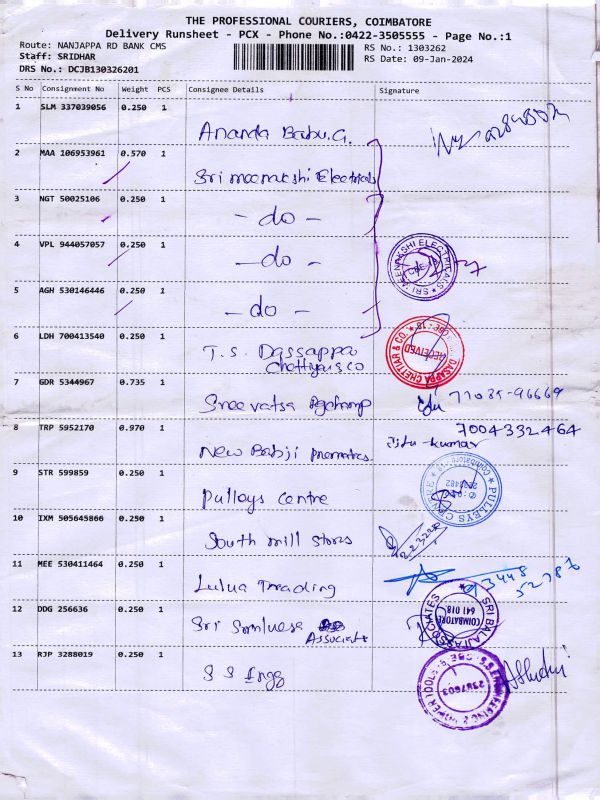 THE PROFESSIONAL COURIERS, COIMBATORE
Delivery Runsheet - PCX - Phone No.:0422-3505555 - Page No.:1
Route: NANJAPPA RD BANK CMS
RS No.: 1303262
Staff: SRIDHAR
RS Date: 09-Jan-2024
DRS No.: DCJB130326201
S No Consignment No Weight PCS Consignee Details Signature
1 SLM 337039056 0.250 1
Ananda Babu.G.
2 MAA 106953961 0.570 1
Sri meenakshi Electricals
3 NGT 50025106 0.250 1
- do -
4 VPL 944057057 0.250 1
- do -
SRI MEENAKSHI ELECTRICALS
5 AGH 530146446 0.250 1
- do -
6 LDH 700413540 0.250 1
T.S. Dassappa
Chettiyar & co
DASAPPA CHETTIAR & CO. CBE-18
RECEIVED
7 GDR 5344967 0.735 1
Sreevatsa
77085-96669
8 TRP 5952170 0.970 1
7004332464
kumar
New Babji Pnematics.
9 STR 599859 0.250 1
Pulleys centre
PULLEYS CENTRE
Coimbatore
10 IXM 505645866 0.250 1
South mill stores
11 MEE 530411464 0.250 1
Lulua Trading
93448
52787
12 DDG 256636 0.250 1
Sri
Associate
SRI BALAJI ASSOCIATES
COIMBATORE
641 018
13 RJP 3288019 0.250 1
S S Engg
2387603